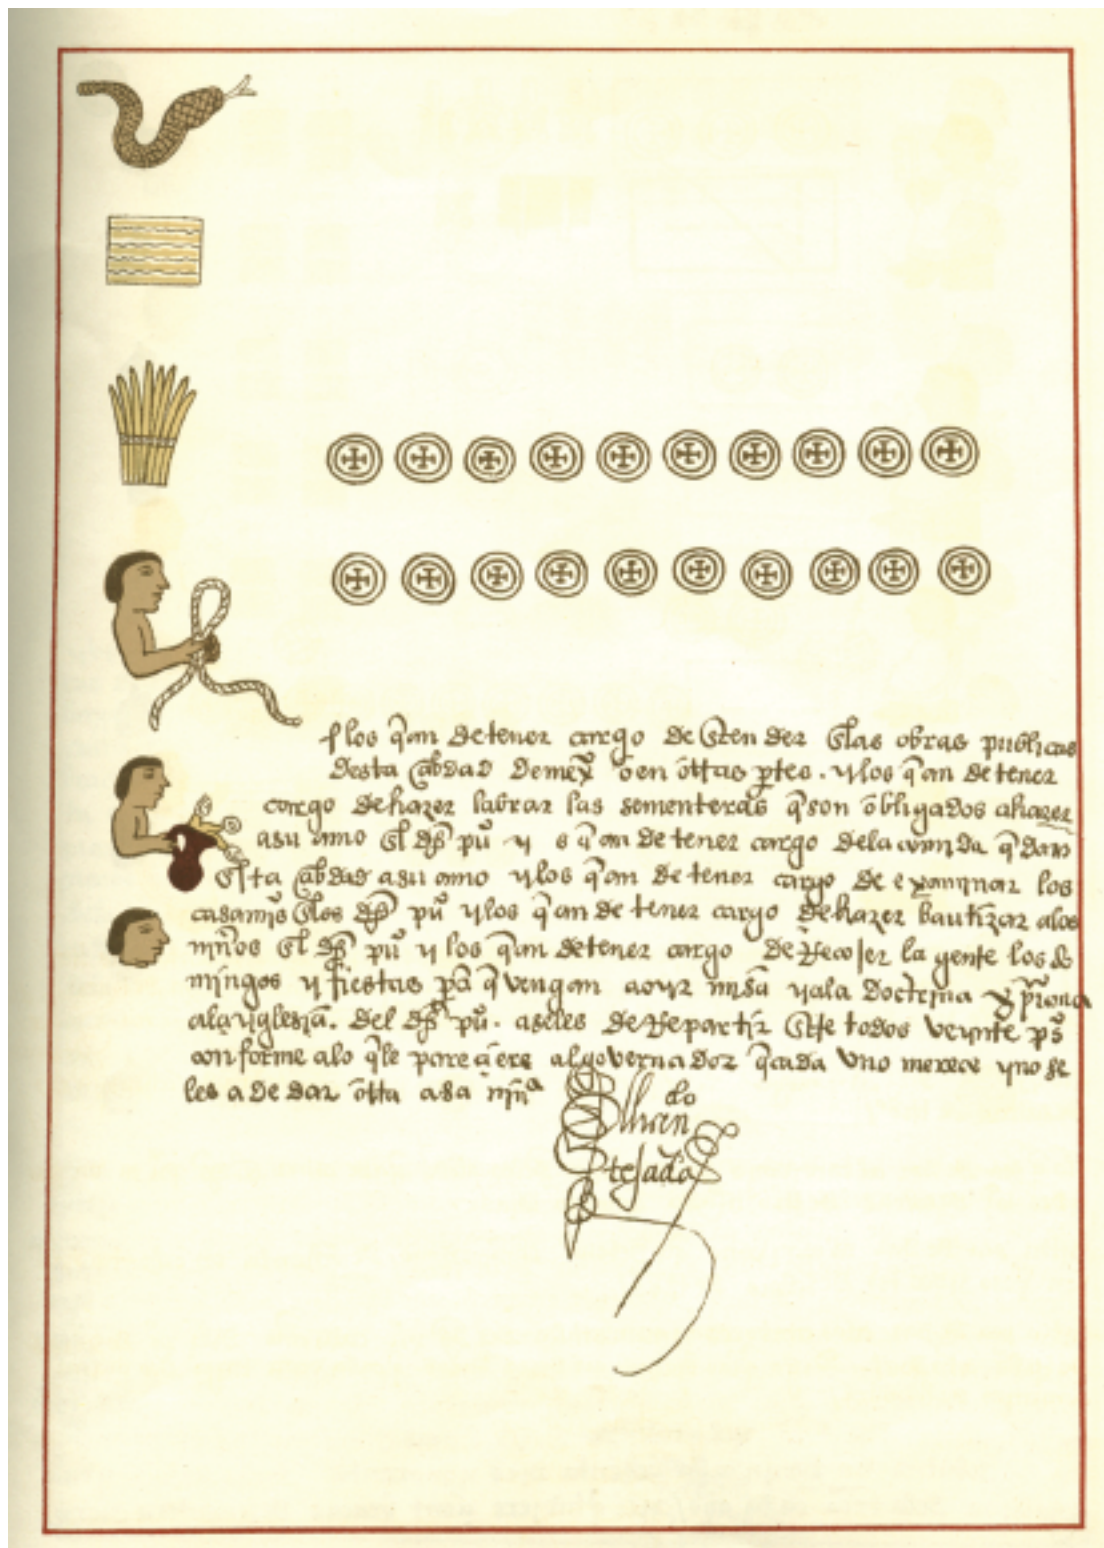 y los q̄ an de tener cargo de Entender En las obras publicas
desta çibdad demex̄ o en ōttas ptes. y los q̄ an de tener
cargo de hazer labrar las sementeras q̄ son obligados a hazer
a su amo El dho pū y q̄ an de tener cargo de la comida q̄ dan
En esta çibdad a su amo y los q̄ an de tener cargo de examynar los
casamyos En los dho pū y los q̄ an de tener cargo de hazer bautizar a los
nyños El dho pū y los q̄ an de tener cargo de Recojer la gente los do
mingos y fiestas pā q̄ vengan a oyr misa y a la doctrina
a la yglesia. del dho pū. aseles de Repartir Este todos veynte ps
conforme a lo q̄ le pareçiere al governador q̄ cada vno merece y no se
les a de dar ōtta cosa
do
tejada